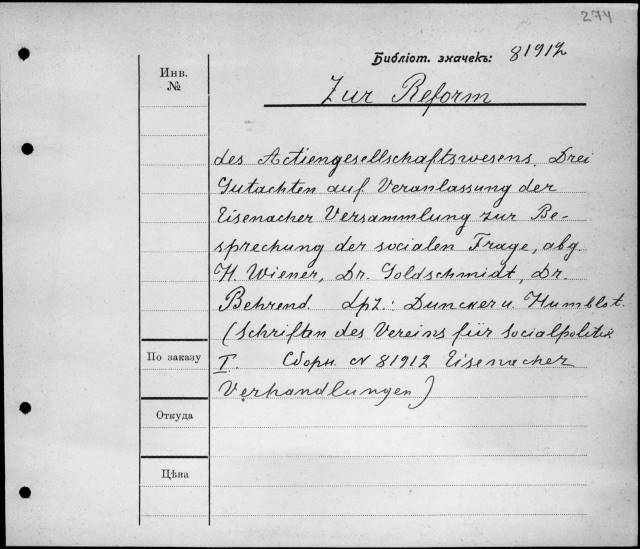 274
Библіот. значекъ: 81912
Инв.
№
Zur Reform
des Actiengesellschaftswesens. Drei
Gutachten auf Veranlassung der
Eisenacher Versammlung zur Be-
sprechung der socialen Frage, abg.
H. Wiener, Dr. Goldschmidt, Dr.
Behrend. Lpz.: Duncker u. Humblot.
(Schriften des Vereins für Socialpolitik
По заказу
I. Сборн. с 81912 Eisenacher
Verhandlungen)
Откуда
Цѣна